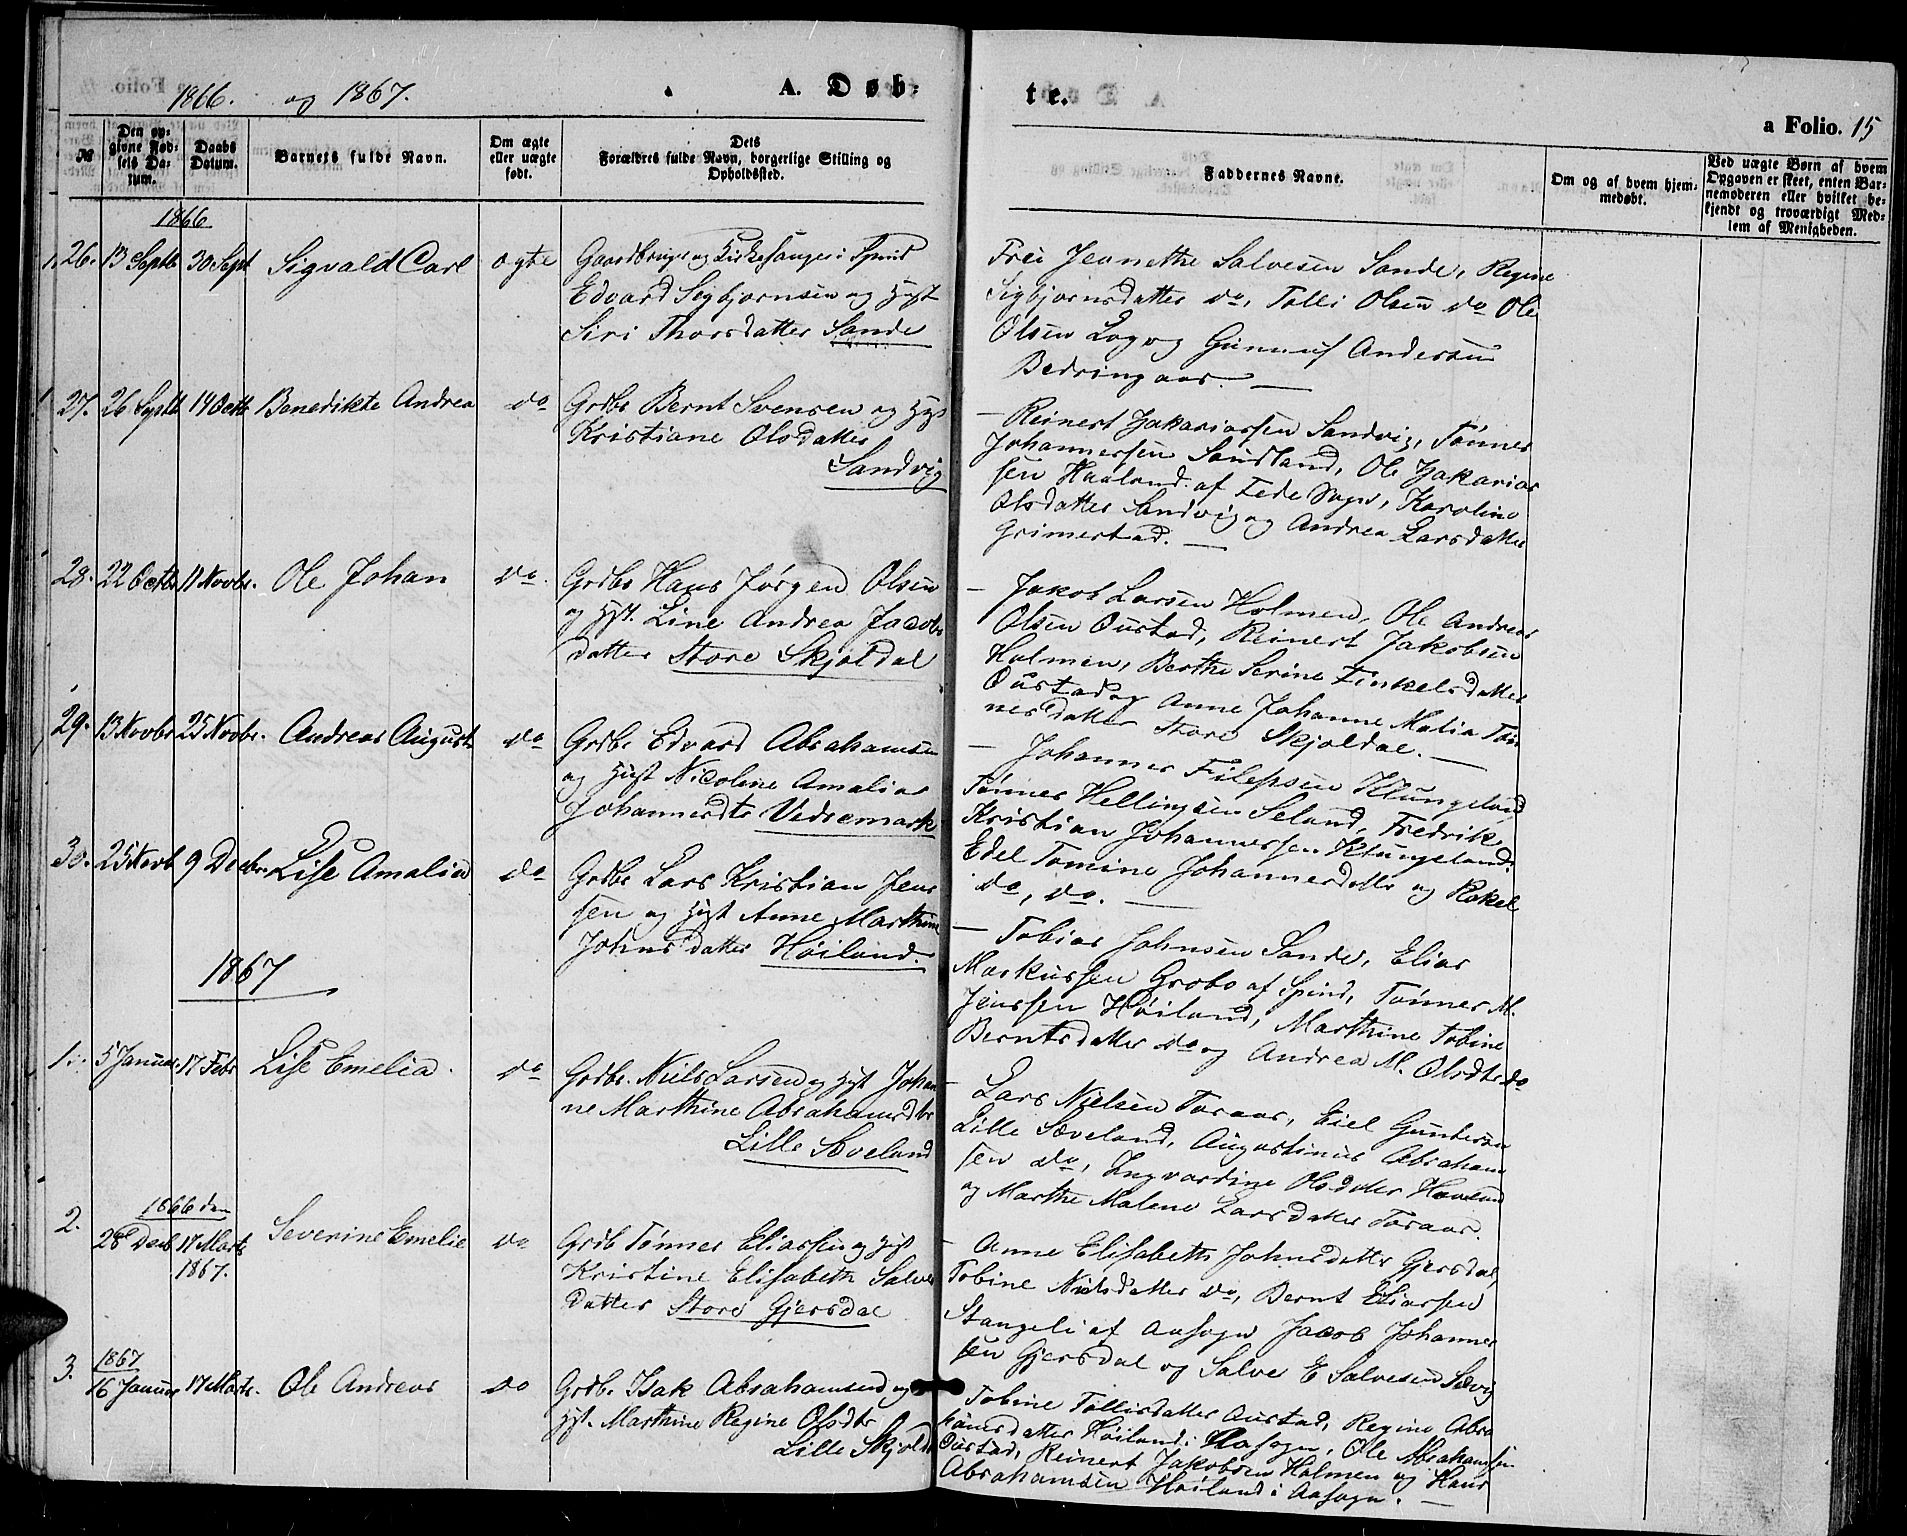 1866. og 1867.
A. Døb-
te.
a Folio. 15
№
Den op-
givne Fød-
sels Da-
tum.
Daabs
Datum.
Barnets fulde Navn.
Om ægte
eller uægte
født.
Dets
Forældres fulde Navn, borgerlige Stilling og
Opholdssted.
Faddernes Navne.
Om og af hvem hjem-
medøbt.
Ved uægte Børn af hvem
Opgaven er skeet, enten Bar-
nemoderen eller hvilket be-
kjendt og troværdigt Med-
lem af Menigheden.
1866
26. 13 Septb 30 Sept Sigvald Carl ægte Gaardbruger og Kirkesanger i Spind
Edvard Segbjørnsen og Hust
Siri Thorsdatter Sande
Jeanethe Salvesen Sande, Regine
Sigbjørnsdatter do, Tolli Olsen do Ole
Olsen Log og Gunnuf Andersen
Bedringaas. —
27. 26 Septb 14 Octb Benedikte Andrea do Grdbr Bernt Svensen og Hust
Kristiane Olsdatter
Sandvig
— Reinert Zakariassen Sandvig, Tønnes
Johannessen Sandland, Ole Zakarias
sen Haaland af Fede Sogn, Karoline
Olsdatter Sandvig og Andrea Larsdatter
Grimestad. —
28. 22 Octbr 11 Novbr. Ole Johan do. Grdbr Hans Jørgen Olsen
og Hst. Line Andrea Jacobs
datter Store Skjoldal
— Jakob Larsen Holmen, Ole Andreas
Olsen Oustad, Reinert Jakobsen
Holmen, Berthe Serine Tinkelsdatter
Oustad og Anne Johanne Malia Tøn
nesdatter Store Skjoldal. —
29. 13 Novbr 25 Novbr. Andreas August do Grdbr Edvard Abrahamsen
og Hust Nicoline Amalia
Johannesdtr Vedremark
— Johannes Filepsen Klungeland
Tønnes Hellingsen Seland, Fredrik
Kristian Johannessen Klungeland
Edel Tomine Johannesdatter og Rakel
do, do. —
30. 25 Novb 9 Decbr. Lise Amalia do Grdbr Lars Kristian Jens
sen og Hust Anne Marthine
Johnsdatter Høiland.
— Tobias Johnsen Sande, Elias
Markussen Grobo af Spind, Tønnes M.
Jenssen Høiland, Marthine Tobine
Berntsdatter do og Andrea M. Olsdtr do
1867
1. 5 Januar. 17 Febr Lise Emelia. do Grdbr. Niels Larsen og Hust Johan
ne Marthine Abrahamsdtr
Lille Sæveland
— Lars Nielsen Toraas, Eiel Gundersen
Lille Sæveland, Augustinus Abraham
sen do, Ingvardine Olsdatter Haveland
og Marthe Malene Larsdatter Toraas.
1866 den
2. 28 Decb 17 Marts Severine Emelie do Grdb Tønnes Eliassen og Hust
1867.
Kristine Elisabeth Salves
datter Store Gjersdal
— Anne Elisabeth Johnsdatter Gjersdal,
Tobine Nielsdatter do, Bernt Eliassen
Stangeli af Aasogn Jacob Johannes
sen Gjersdal og Salve E Salvesen Sævig
1867
3. 16 Januar 17 Marts. Ole Andreas do Grdbr Isak Abrahamsen og
Hst. Marthine Regine Olsdtr
Lille Skjold
Tobine Tollisdatter Austad, Regine Abra
hamsdatter Høiland i Aasogn, Ole Abrahamsen
Oustad, Reinert Jakobsen Holmen og Hans
Abrahamsen Høiland i Aasogn. —